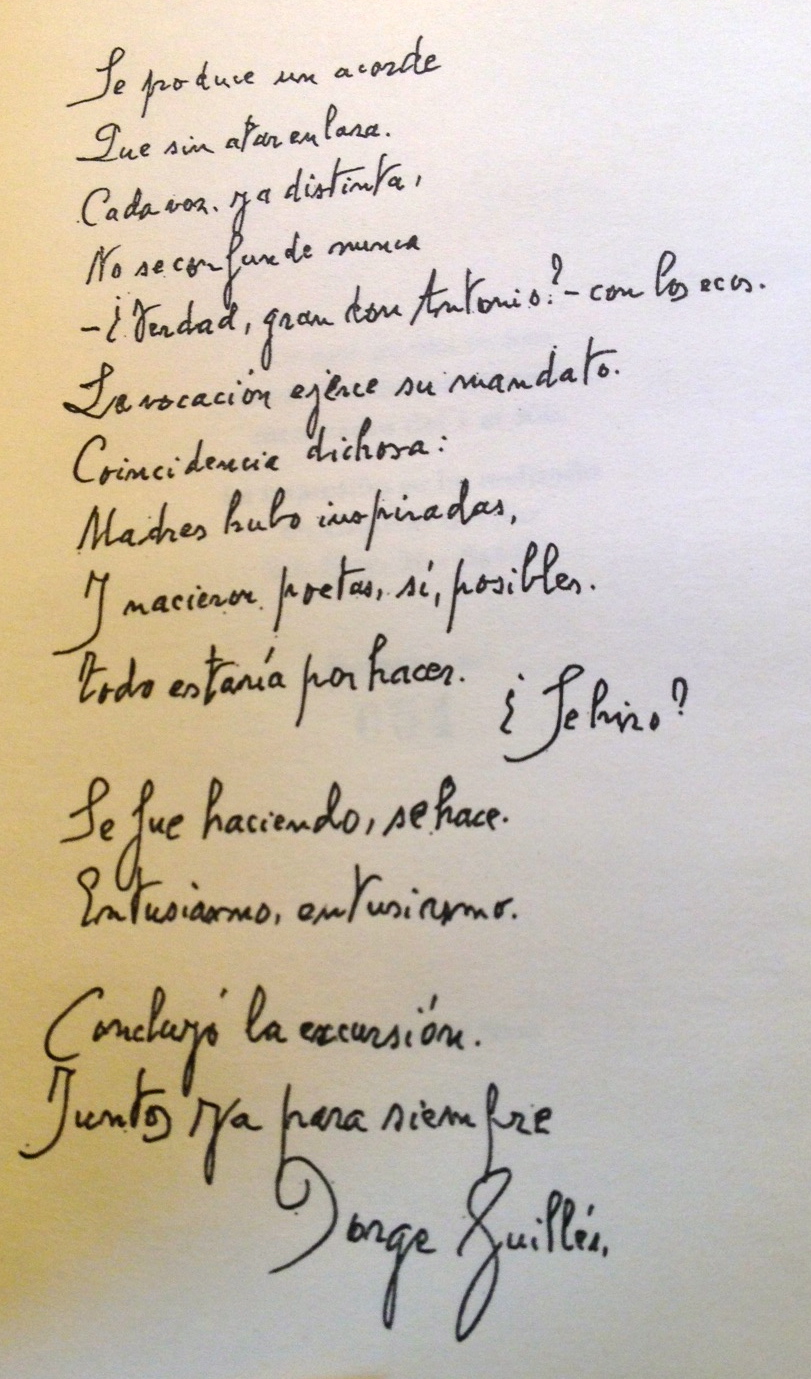 Se produce un acorde
Que sin atar enlaza.
Cada voz, ya distinta,
No se confunde nunca
—¿Verdad, gran don Antonio?— con los ecos.
La vocación ejerce su mandato.
Coincidencia dichosa:
Madres hubo inspiradas,
Y nacieron poetas, sí, posibles.
Todo estaría por hacer.
¿Se hizo?
Se fue haciendo, se hace.
Entusiasmo, entusiasmo.
Concluyó la excursión.
Juntos ya para siempre
Jorge Guillén.